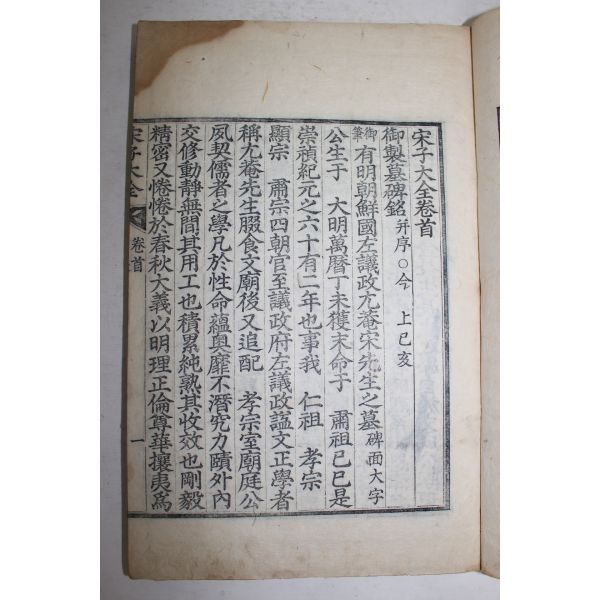 宋子大全卷首
御製墓碑銘 幷序○今 上己亥
御筆 有明朝鮮國左議政尤菴宋先生之墓 碑面大字
公生于 大明萬曆丁未獲末命于 肅祖己巳是
崇禎紀元之六十有二年也事我 仁祖 孝宗
顯宗 肅宗四朝官至議政府左議政謚文正學者
稱尤菴先生腏食文廟後又追配 孝宗室廟庭公
夙契儒者之學凡於性命蘊奧靡不潛究力賾外內
交修動靜無間其用工也積累純熟其收效也剛毅
精密又惓惓於春秋大義以明理正倫尊華攘夷爲
宋子大全 卷首 一